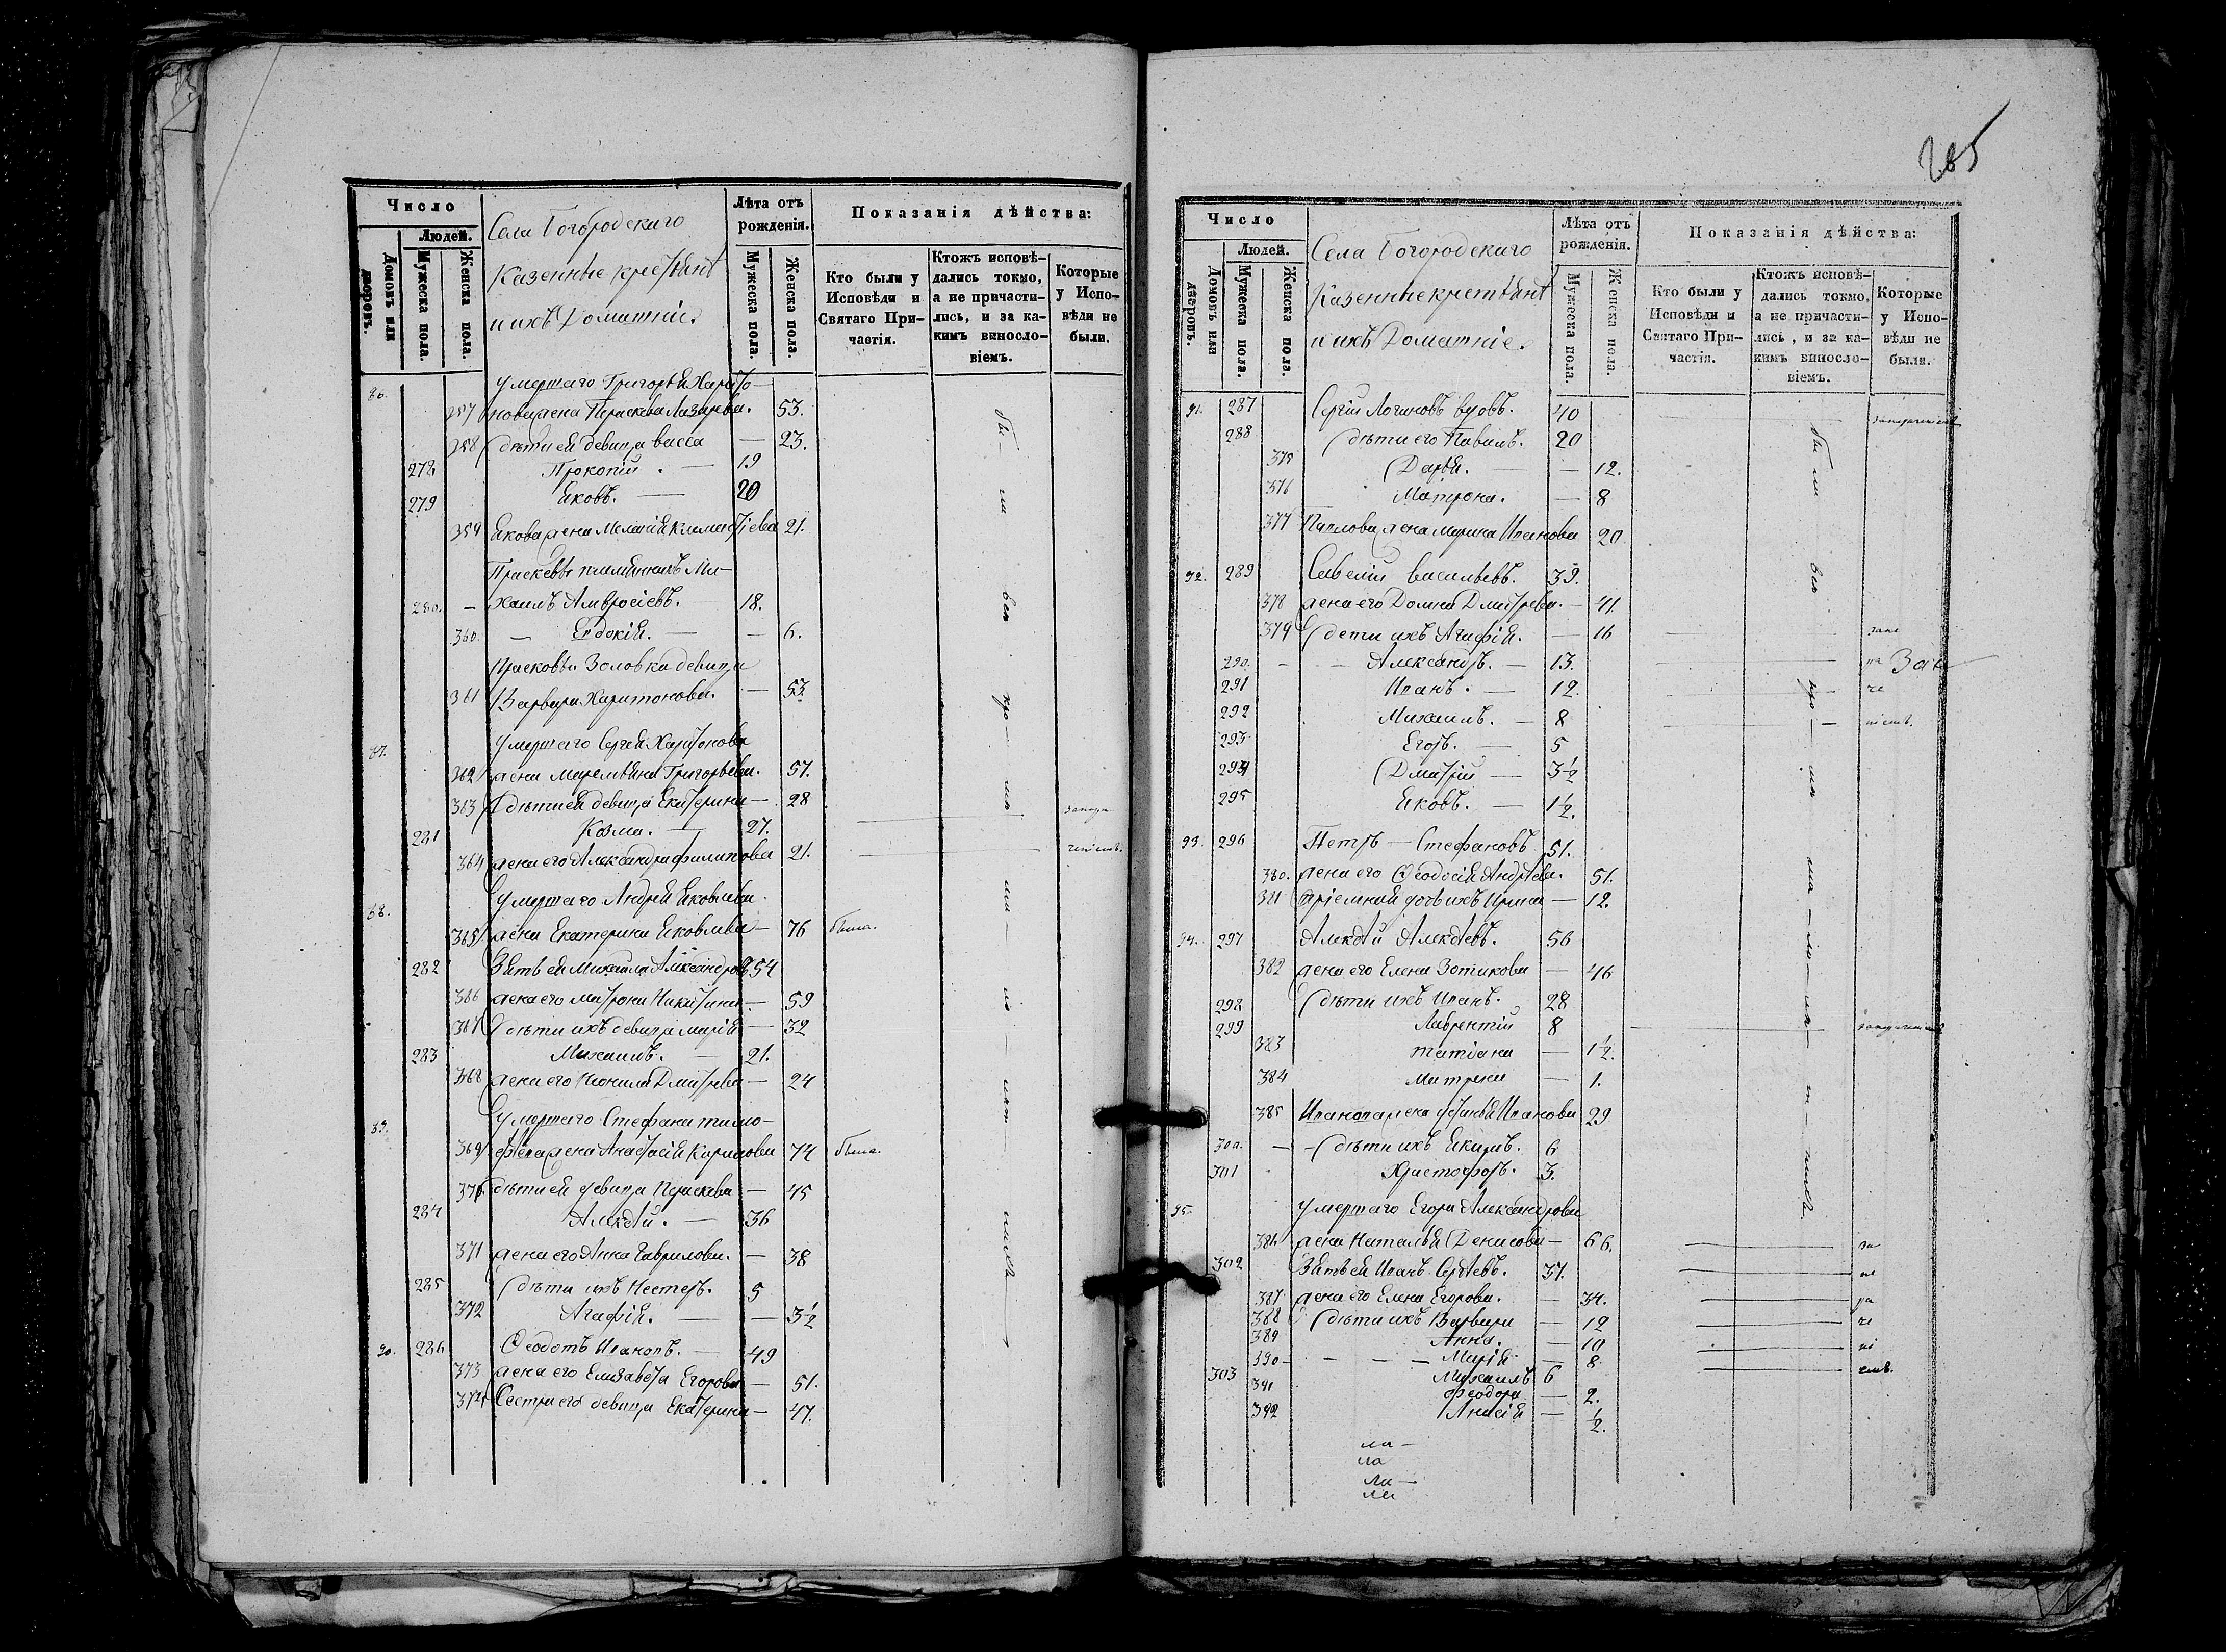 Число
Людей.
Домовъ или дворовъ.
Мужеска пола.
Женска пола.
Села Богородскаго
Казенные крестьянѣ
и ихъ Домашніе.
Лѣта отъ рожденія.
Мужеска пола.
Женска пола.
Показанія дѣйства:
Кто были у Исповѣди и Святаго Причастія.
Ктожъ исповѣдались токмо, а не причастились, и за какимъ винословіемъ.
Которые у Исповѣди не были.
86. умершаго Григорья Харито-
357 нова жена Параскева Лазарева. 53.
358 дѣти ей девица васса — 23.
278 Прокопій. — 19
279 Яковъ. — 20
359 Якова жена Меланія Климентіева 21.
Праскевьи племянникъ Ми-
280. — хаилъ Амвросіевъ. 18.
360. — Евдокія. — — 6.
Прасковьи Золовка девица
361 Варвара Харитонова. — 53.
87. умершаго Сергея Харитонова
362 жена Маремьяна Григорьева. 57.
363 дѣти ей девица Екатерина — 28
281 Козма. — 27.
364 жена его Александра филипова 21.
88. умершаго Андрея Яковлева
365 жена Екатерина Яковлева — 76 была.
282 Зять ей Михайла Александровъ 54
366 жена его Матрона Никитина — 59
367 дѣти ихъ девица Марія — 32
283 Михаилъ. — 21.
368 жена его Неонила Дмитрева — 24
89. умершаго Стефана тимо-
369 фѣева жена Анастасія Карпова 74 была.
370 дѣти ей девица Праскева — 45
284 Алексѣй. — 36
371 жена его Анна Гаврилова. — 38
285 дѣти ихъ Нестеръ. 5
372 Агафія. — — 3½
90. 286 Феодотъ Ивановъ. — 49
373 жена его Елизавета Егорова — 51.
374 Сестра его девица Екатерина — 47.
285
Число
Людей.
Домовъ или дворовъ.
Мужеска пола.
Женска пола.
Села Богородскаго
Казенные крестьянѣ
и ихъ Домашніе.
Лѣта отъ рожденія.
Мужеска пола.
Женска пола.
Показанія дѣйства:
Кто были у Исповѣди и Святаго Причастія.
Ктожъ исповѣдались токмо, а не причастились, и за какимъ винословіемъ.
Которые у Исповѣди не были.
91. 287 Сергій Логиновъ вдовъ. 40
288 дѣти его Павелъ. 20
375 Дарья. — — 12.
376 Матрона. — 8
377 Павлова жена Марина Иванова 20.
92. 289 Савелій васильевъ. 39.
378 жена его Домна Дмитрева. — 41.
379 дети ихъ Агафія. — 16
290. — — Александръ. — 13.
291 Иванъ. — 12.
292 Михаилъ. — 8
293 Егоръ. — 5
294 Дмитрій — 3½
295 Яковъ. — 1½.
93. 296 Петръ — Стефановъ 51.
380. жена его Феодосія Андрѣева. 51.
381 пріемная дочь ихъ Ирина — 12.
94. 297 Алексѣй Алексѣевъ. 56
382 жена его Елена Зотикова — 46
298 дѣти ихъ Иванъ. 28
299 Лаврентій 8
383 татіана — 1½.
384 Матрена — 1.
385 Иванова жена Иванова 29
300. — — дѣти ихъ 6
301 Христофоръ. 3.
95. умершаго Егора Александрова
386 жена Наталья Денисова — 66.
302 Зять ей Иванъ Сергѣевъ. 37.
387 жена его Елена Егорова. — 34.
388 дѣти ихъ Варвара — 12
389 Анна. — 10
390 — — — — Марія — 8.
303 Михаилъ 6
391 Феодора — 2.
392 Анисія — ½.